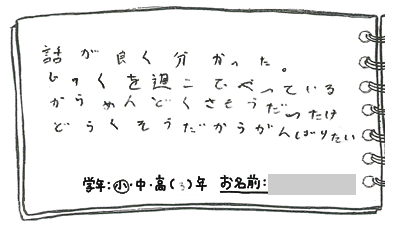 話が良く分かった。
じゅくを週二でやっている
からめんどくさそうだったけ
どらくそうだからがんばりたい
学年:小・中・高(3)年 お名前: